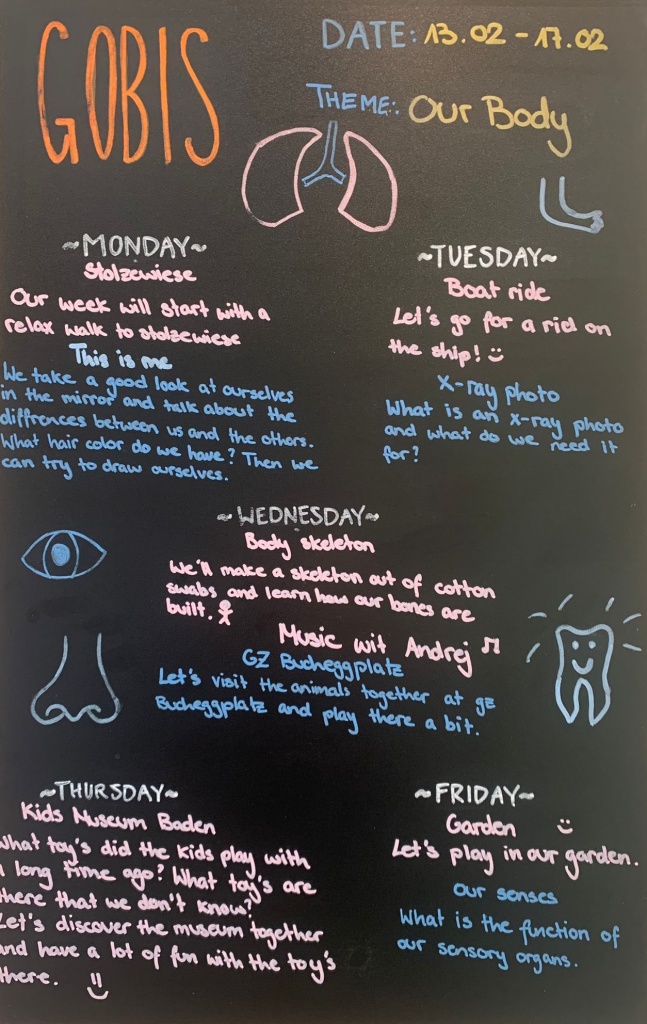 GOBIS
DATE: 13.02 - 17.02
THEME: Our Body
~MONDAY~
Stolzewiese
Our week will start with a
relax walk to stolzewiese
This is me
We take a good look at ourselves
in the mirror and talk about the
diffrences between us and the others.
What hair color do we have? Then we
can try to draw ourselves.
~TUESDAY~
Boat ride
Let's go for a ried on
the ship!
X-ray photo
What is an x-ray photo
and what do we need it
for?
~WEDNESDAY~
Body skeleton
We'll make a skeleton out of cotton
swabs and learn how our bones are
built.
Music wit Andrej
GZ Bucheggplatz
Let's visit the animals together at gz
Bucheggplatz and play there a bit.
~THURSDAY~
Kids Museum Baden
What toy's did the kids play with
a long time ago? What toy's are
there that we don't know?
Let's discover the museum together
and have a lot of fun with the toy's
there.
~FRIDAY~
Garden
Let's play in our garden.
Our senses
What is the function of
our sensory organs.